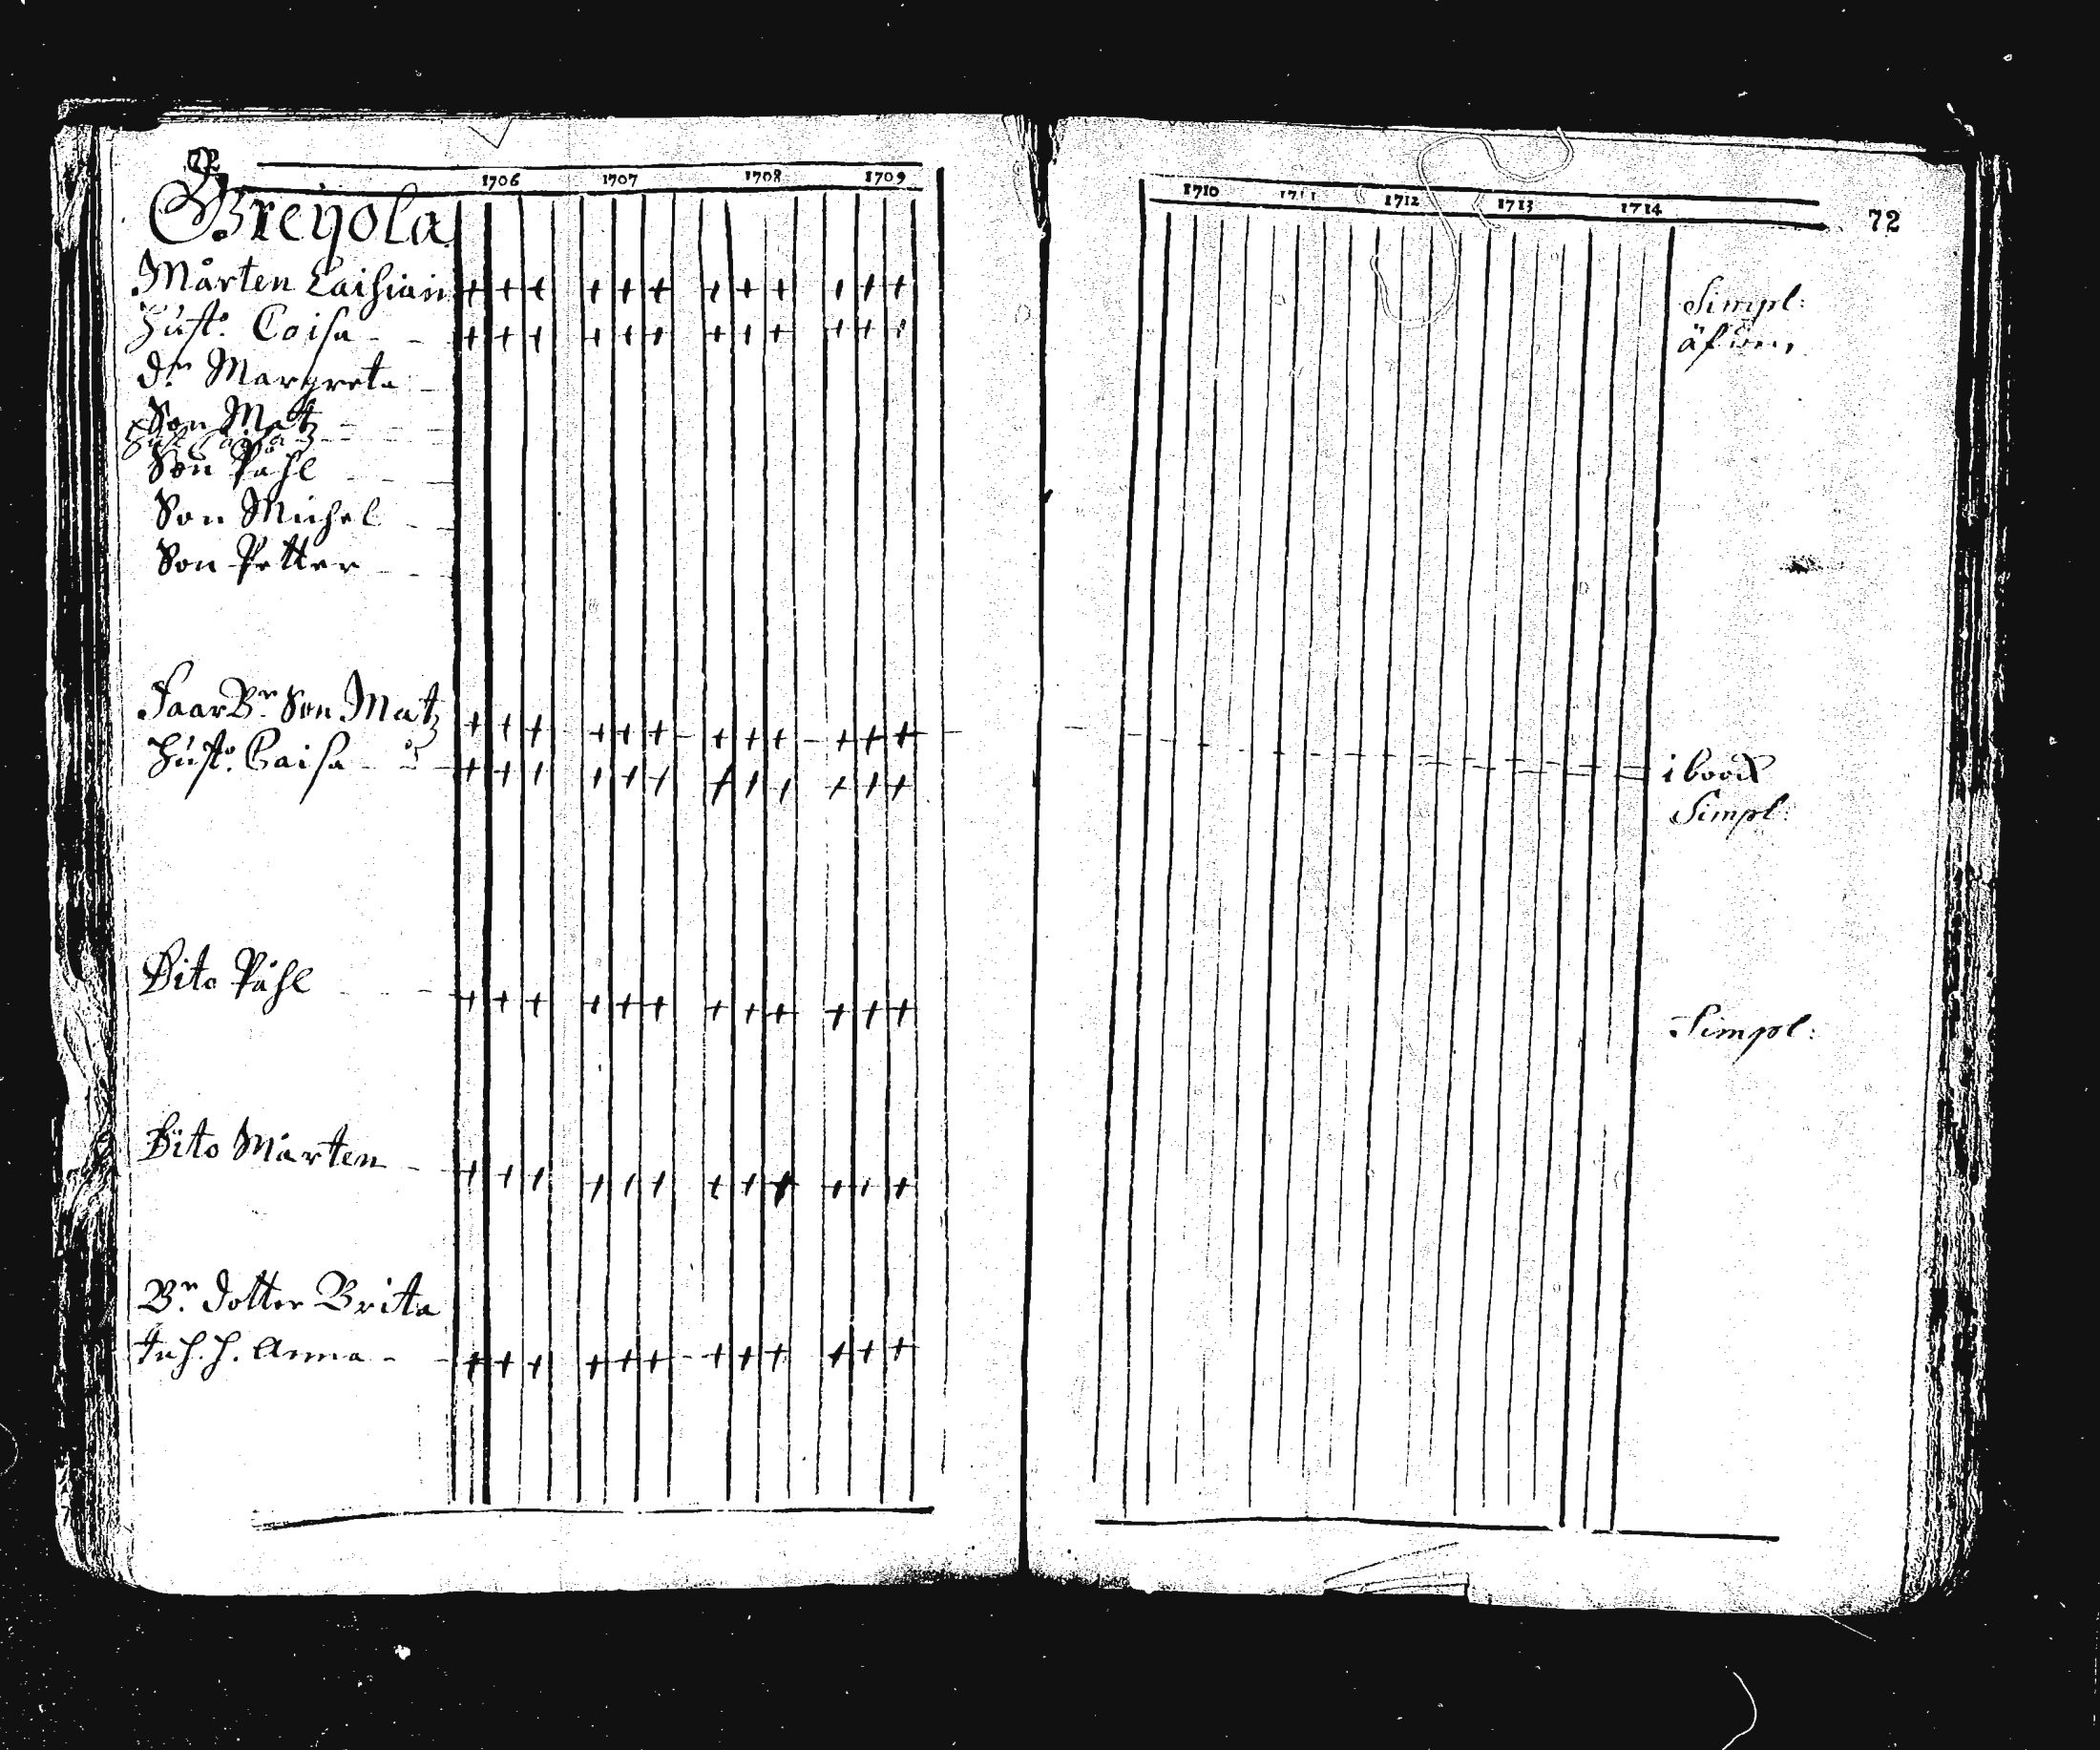 1706 1707 1708 1709
Greijola
Mårten Laihiain
Hust: Coisa
dr Margreta
Son Matz
Hust
Son Påhl
Son Michel
Son Petter
Faar Br Son Matz
Hust: Caisa
Dito Påhl
Dito Mårten
Br dotter Brita
Inh. h. Anna
1710 1711 1712 1713 1714
72
Simpl:
äfwen
i book
Simpl:
Simpl: